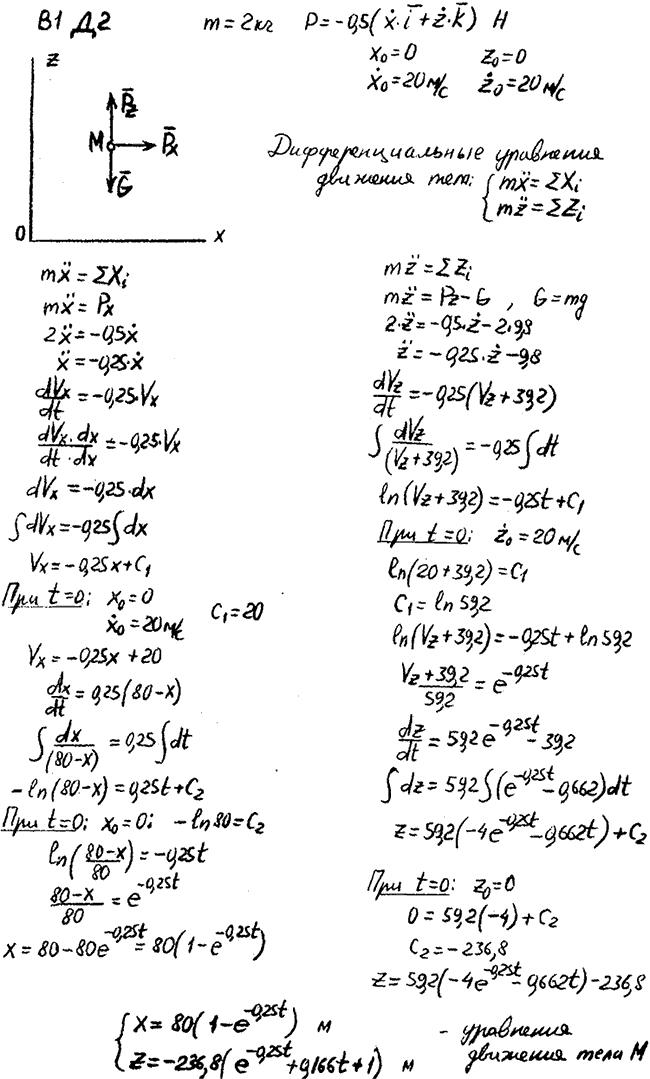 В1 Д2 m = 2кг P̄ = -0,5(ẋ·ī + ż·k̄) Н
x₀ = 0 z₀ = 0
ẋ₀ = 20 м/с ż₀ = 20 м/с
z
P̄z
M P̄x
Ḡ
0 x
Дифференциальные уравнения
движения тел: { mẍ = ΣXi
mz̈ = ΣZi
mẍ = ΣXi
mẍ = Px
2ẍ = -0,5ẋ
ẍ = -0,25·ẋ
dVx/dt = -0,25·Vx
dVx·dx/dt·dx = -0,25·Vx
dVx = -0,25·dx
∫dVx = -0,25∫dx
Vx = -0,25x + C₁
При t=0: x₀ = 0
ẋ₀ = 20 м/с C₁ = 20
Vx = -0,25x + 20
dx/dt = 0,25(80-x)
∫dx/(80-x) = 0,25∫dt
-ln(80-x) = 0,25t + C₂
При t=0: x₀ = 0: -ln80 = C₂
ln((80-x)/80) = -0,25t
(80-x)/80 = e^(-0,25t)
x = 80 - 80e^(-0,25t) = 80(1 - e^(-0,25t))
mz̈ = ΣZi
mz̈ = Pz - G , G = mg
2·z̈ = -0,5·ż - 2·9,8
z̈ = -0,25·ż - 9,8
dVz/dt = -0,25(Vz + 39,2)
∫dVz/(Vz + 39,2) = -0,25∫dt
ln(Vz + 39,2) = -0,25t + C₁
При t=0: ż₀ = 20 м/с
ln(20 + 39,2) = C₁
C₁ = ln 59,2
ln(Vz + 39,2) = -0,25t + ln 59,2
(Vz + 39,2)/59,2 = e^(-0,25t)
dz/dt = 59,2 e^(-0,25t) - 39,2
∫dz = 59,2∫(e^(-0,25t) - 0,662)dt
z = 59,2(-4e^(-0,25t) - 0,662t) + C₂
При t=0: z₀ = 0
0 = 59,2(-4) + C₂
C₂ = -236,8
z = 59,2(-4e^(-0,25t) - 0,662t) - 236,8
{ x = 80(1 - e^(-0,25t)) м - уравнения
z = -236,8(e^(-0,25t) + 0,166t + 1) м движения тела М